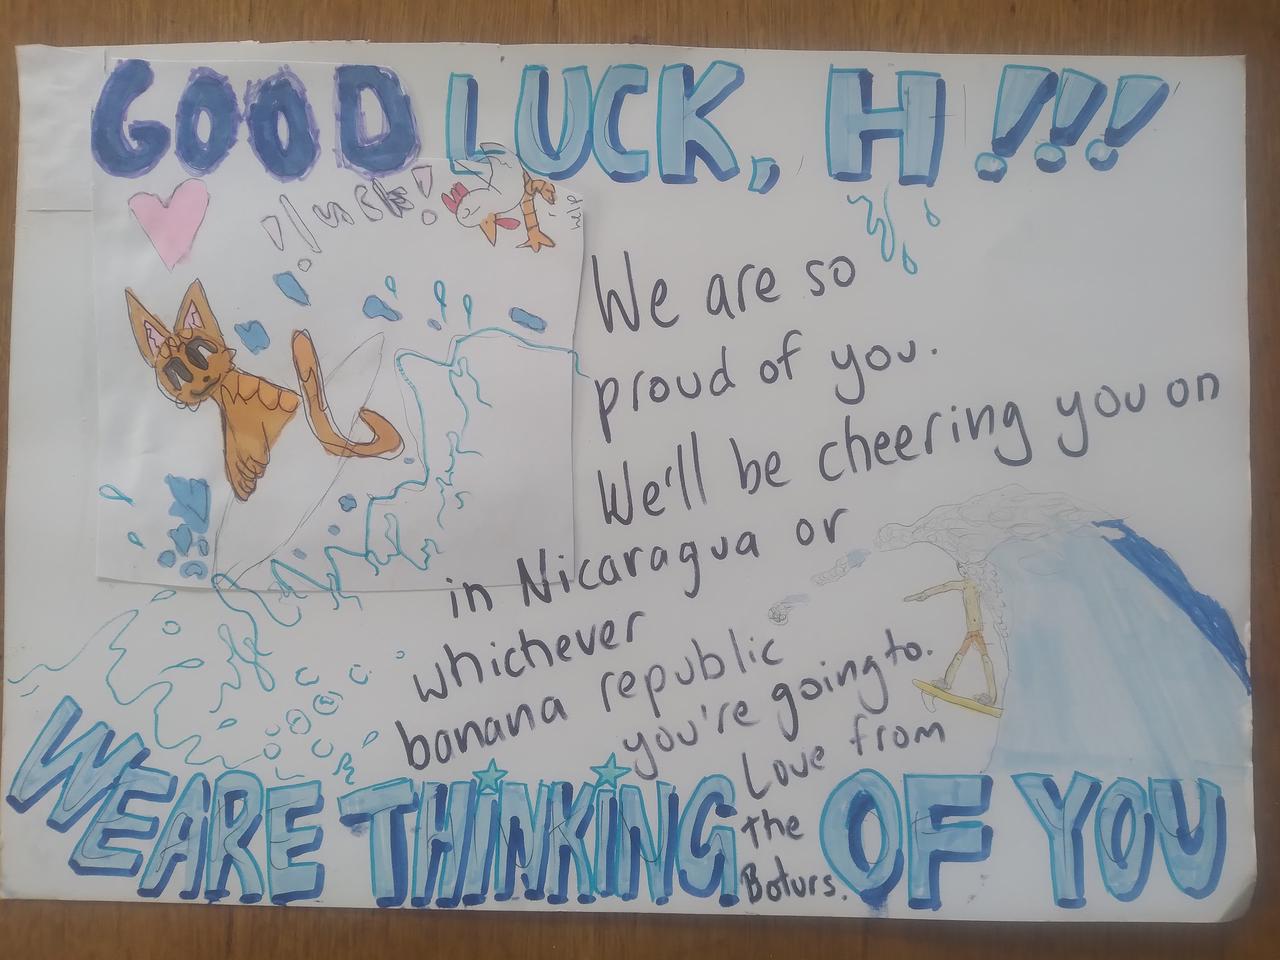 GOOD LUCK, H!!!
Pluck!
help
We are so
proud of you.
We'll be cheering you on
in Nicaragua or
whichever
banana republic
you're going to.
Love from
the
Boturs.
WE ARE THINKING OF YOU